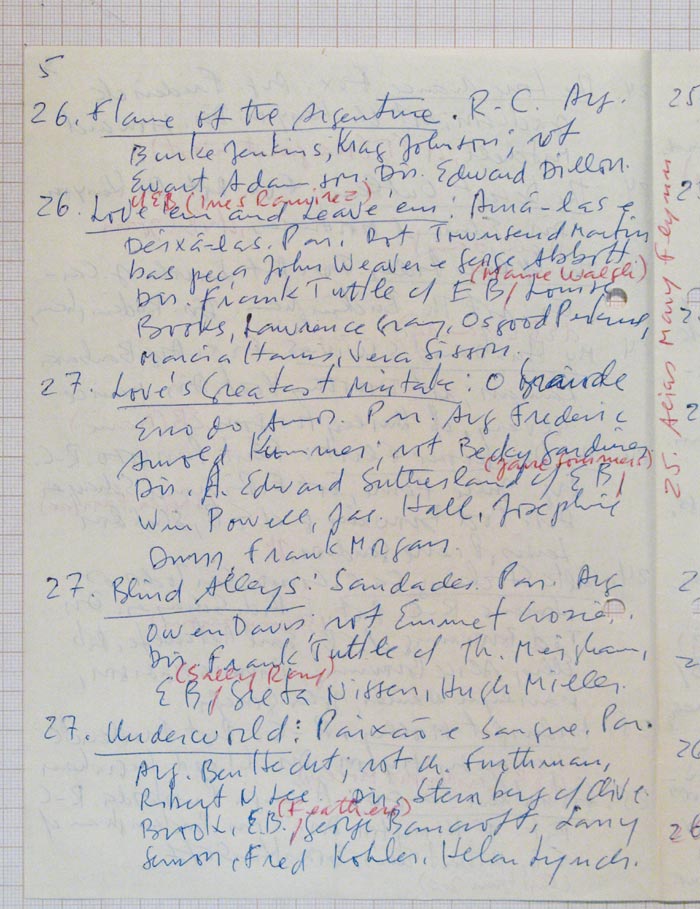 5
26. Flame of the Argentine. R-C. Arg.
Burke Jenkins, Krag Johnson; rot
Ewart Adamson. Dir. Edward Dillon.
c/ EB (Ines Ramirez)
26. Love 'em and Leave 'em: Amá-las e
Deixá-las. Par. Rot Townsend Martin
bas peça John Weaver e George Abbott
(Mame Walsh)
Dir. Frank Tuttle c/ EB, Louise
Brooks, Lawrence Gray, Osgood Perkins,
Marcia Harris, Vera Sisson.
27. Love's Greatest Mistake: O Grande
Erro do Amor. Par. Arg Frederic
Arnold Kummer; rot Becky Gardiner
(Jane Sommers)
Dir. A. Edward Sutherland c/ EB,
Wm Powell, Jas. Hall, Josephine
Dunn, Frank Morgan
27. Blind Alleys: Saudades. Par. Arg
Owen Davis; rot Emmet Crozier.
Dir. Frank Tuttle c/ Th. Meighan,
(Sally Ray)
EB, Greta Nissen, Hugh Miller.
27. Underworld: Paixão e Sangue. Par.
Arg. Ben Hecht; rot ch. Furthman,
Robert N Lee. Dir. Sternberg c/ Clive
(Feathers)
Brook, EB, George Bancroft, Larry
Semon, Fred Kohler, Helen Lynch.
25
25. Mary Flynn
2
2
2
2
26
26